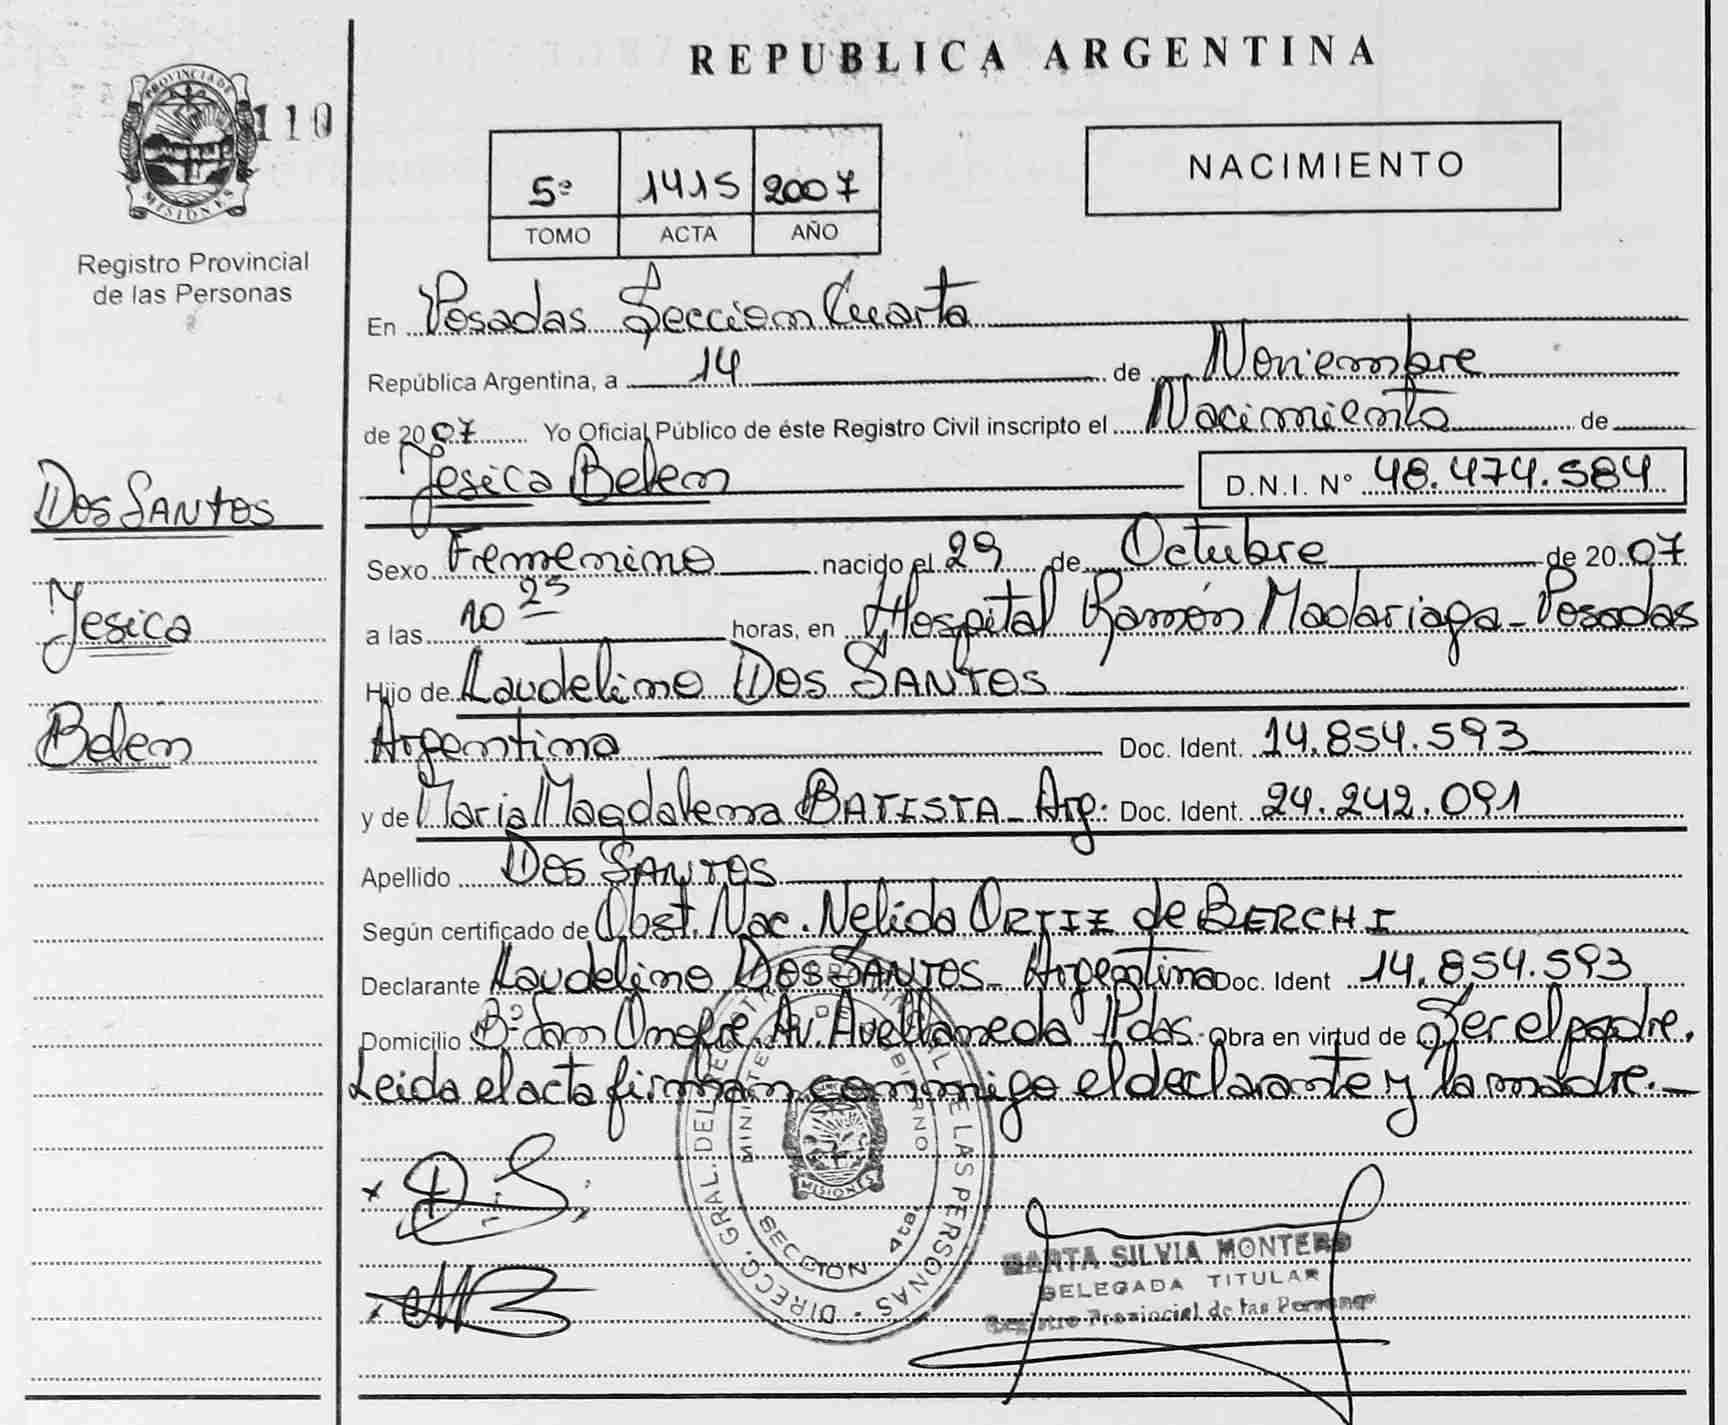 REPUBLICA ARGENTINA
PROVINCIA DE MISIONES
110
Registro Provincial
de las Personas
5º 1415 2007
TOMO ACTA AÑO
NACIMIENTO
En Posadas Seccion Cuarta
República Argentina, a 14 de Noviembre
de 2007 Yo Oficial Público de éste Registro Civil inscripto el Nacimiento de
Jesica Belen D.N.I. Nº 48.474.584
Dos SANTOS
Jesica
Belen
Sexo Femenino nacido el 29 de Octubre de 2007
a las 10 25 horas, en Hospital Ramón Madariaga - Posadas
Hijo de Laudelino Dos SANTOS
Argentino Doc. Ident. 14.854.593
y de Maria Magdalena BATISTA - Arg. Doc. Ident. 24.242.091
Apellido Dos SANTOS
Según certificado de Obst. Nac. Nelida ORTIZ de BERCHI
Declarante Laudelino Dos SANTOS - Argentino Doc. Ident 14.854.593
Domicilio Bº San Onofre Av. Avellaneda Pdas. Obra en virtud de Ser el padre.
Leida el acta firman conmigo el declarante y la madre.-
DIRECC. GRAL. DEL REGISTRO PROVINCIAL DE LAS PERSONAS
MINISTERIO DE GOBIERNO
MISIONES
SECCION 4ta.
MARTA SILVIA MONTERO
DELEGADA TITULAR
Registro Provincial de las Personas